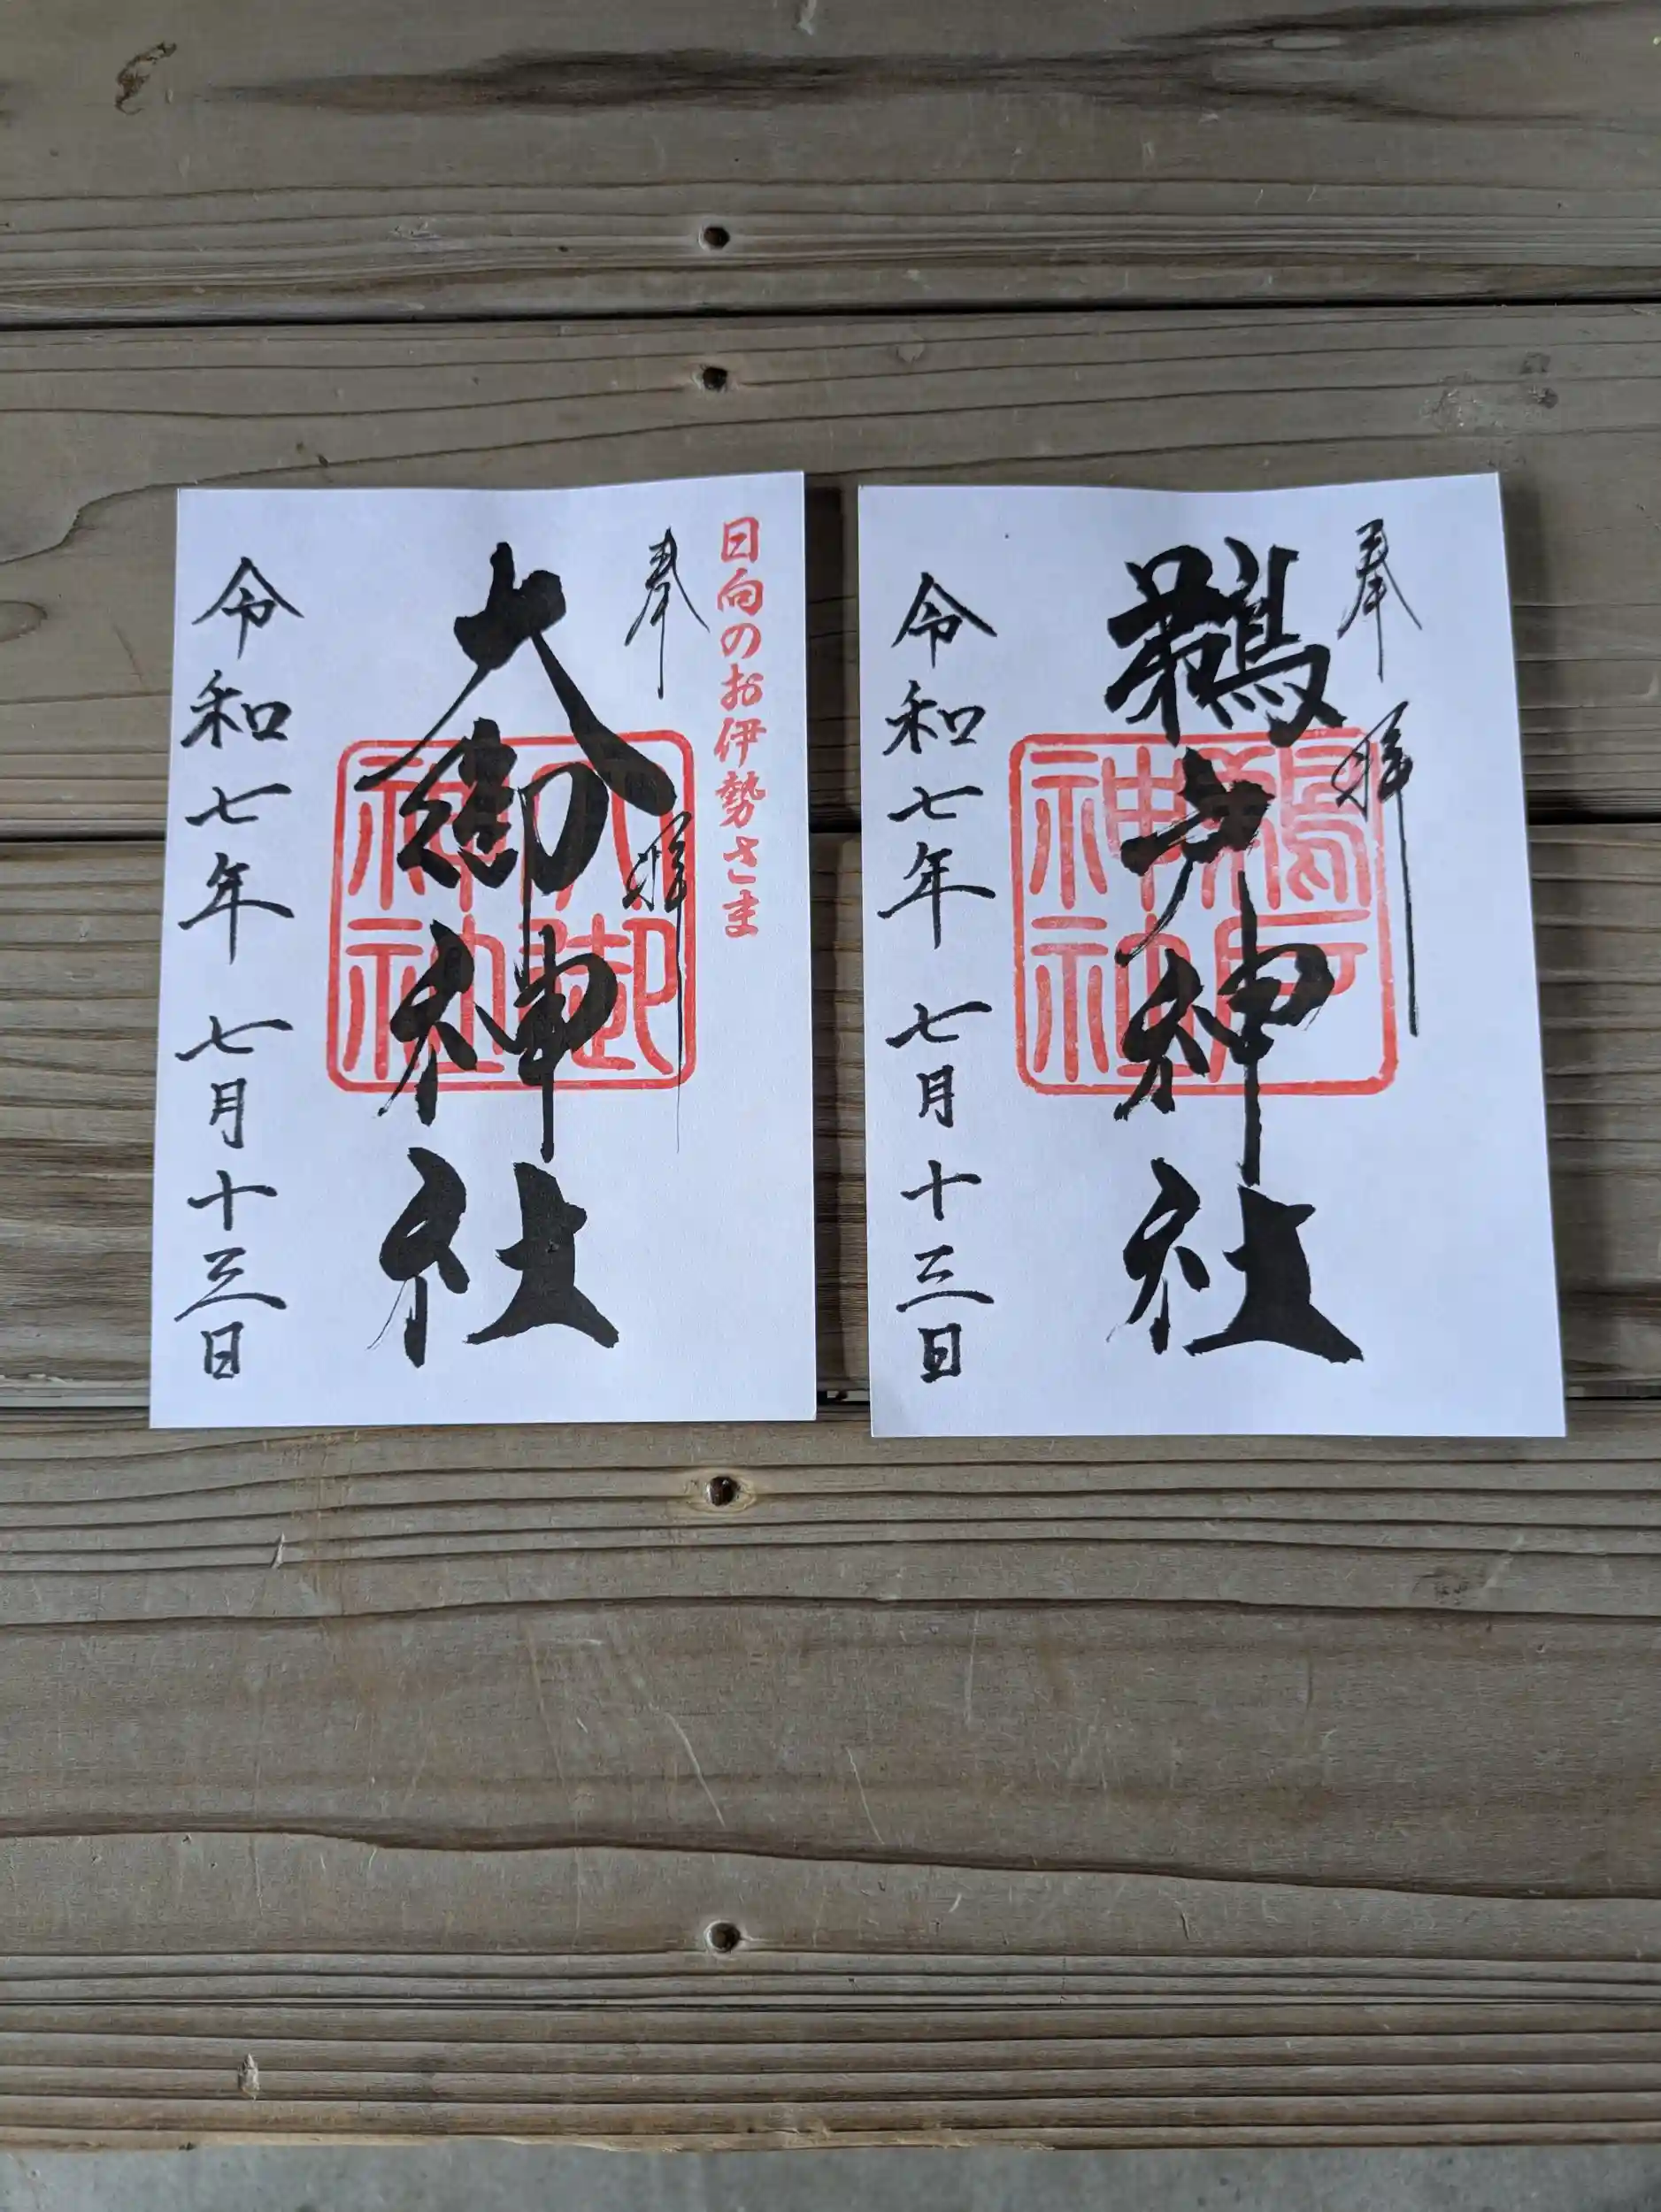 日向のお伊勢さま
奉拝
大御神社
大御神社
令和七年七月十三日
奉拝
鵜戸神社
鵜戸神社
令和七年七月十三日